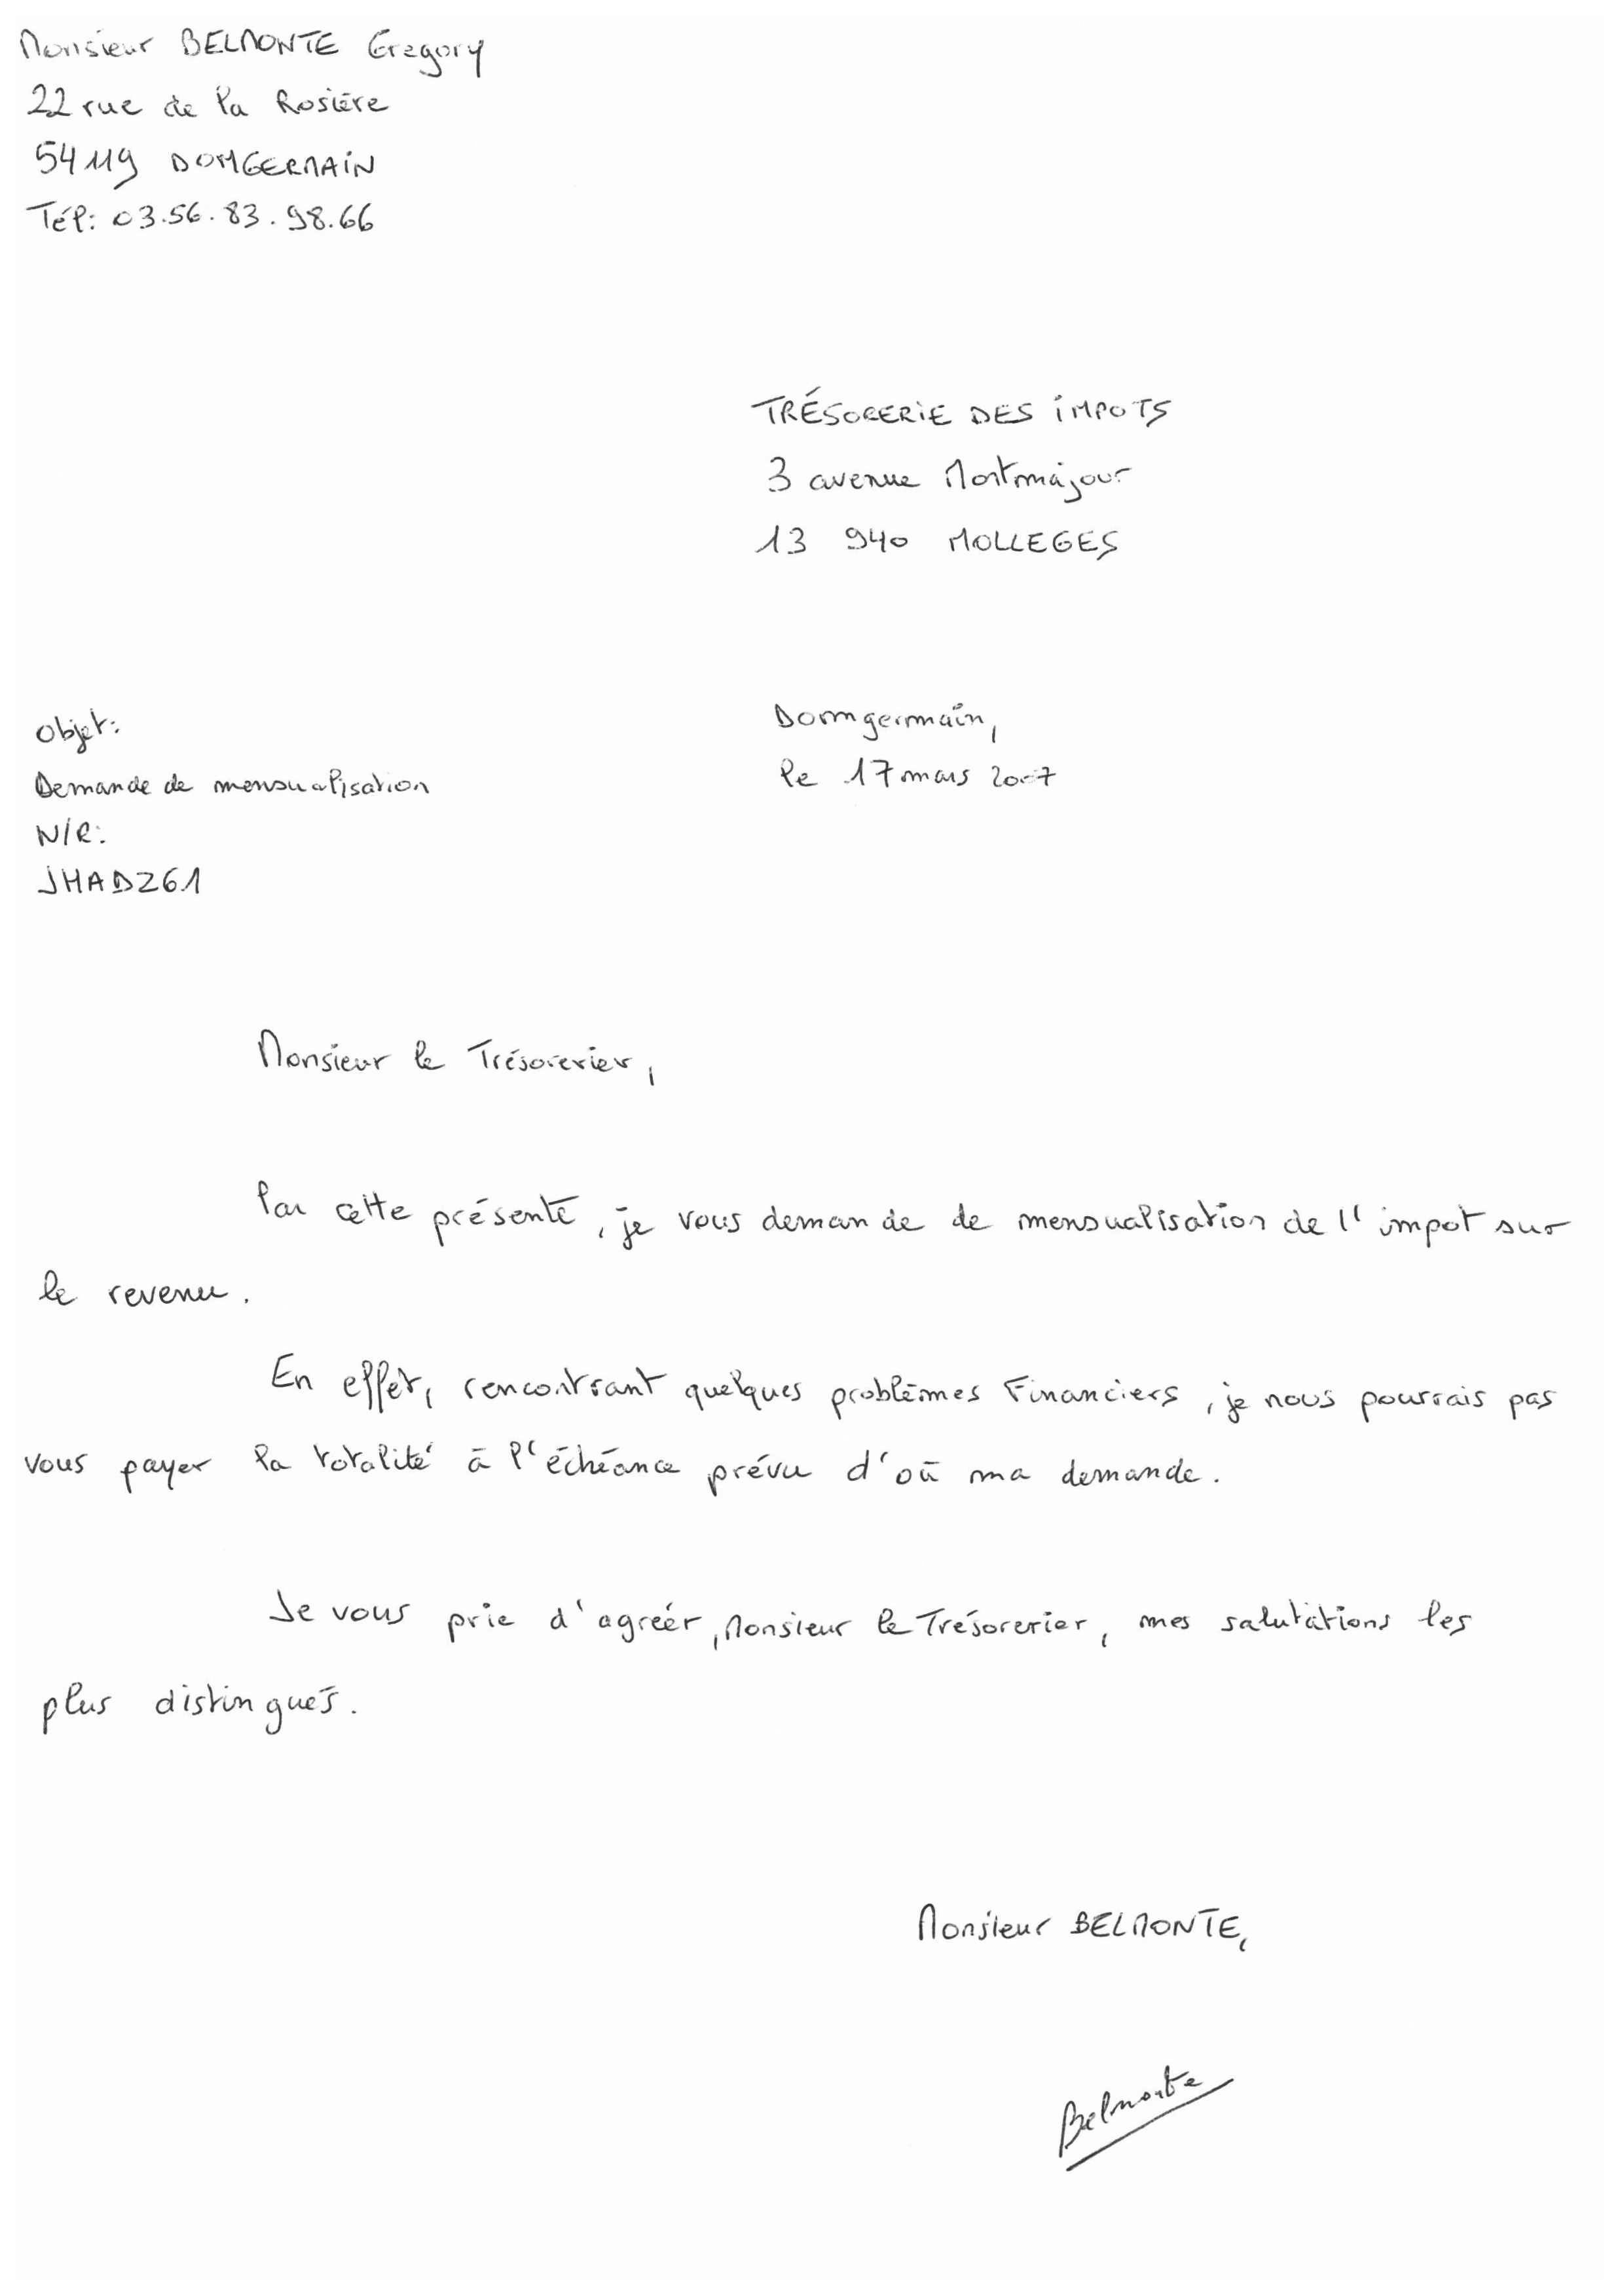 Monsieur BELMONTE Gregory
22 rue de la Rosière
54119 DOMGERMAIN
Tél: 03.56.83.98.66
TRÉSORERIE DES IMPOTS
3 avenue Montmajour
13 940 MOLLEGES
Objet:
Domgermain,
Demande de mensualisation
le 17 mars 2007
N/R:
JHADZ61
Monsieur le Trésorerier,
Par cette présente, je vous demande de mensualisation de l'impot sur
le revenu.
En effet, rencontrant quelques problèmes Financiers, je nous pourrais pas
vous payer la totalité à l'échéance prévu d'où ma demande.
Je vous prie d'agréér, Monsieur le Trésorerier, mes salutations les
plus distingués.
Monsieur BELMONTE,
Belmonte